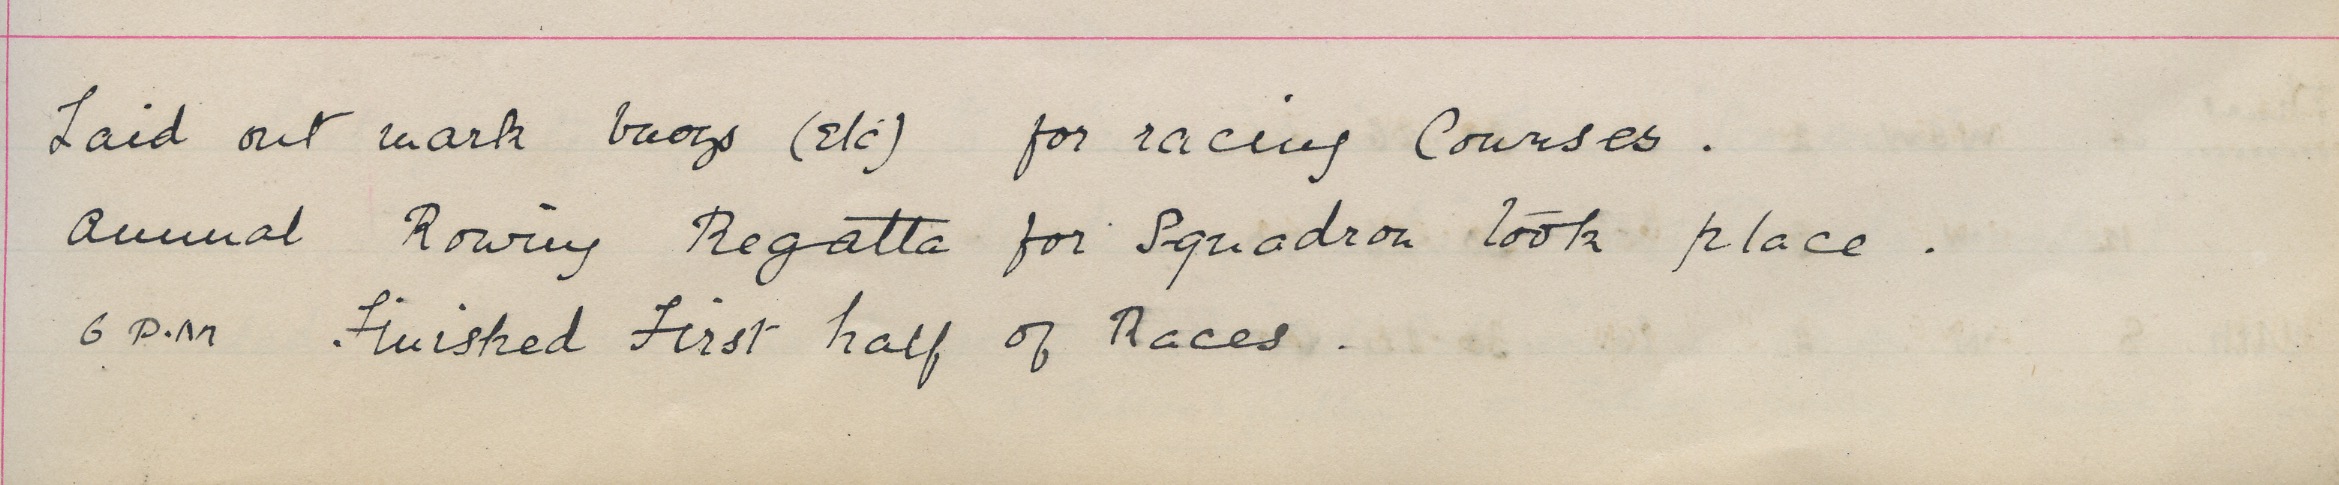 Laid out mark buoys (Etc) for racing Courses.
Annual Rowing Regatta for Squadron took place.
6 P.M Finished First half of Races.